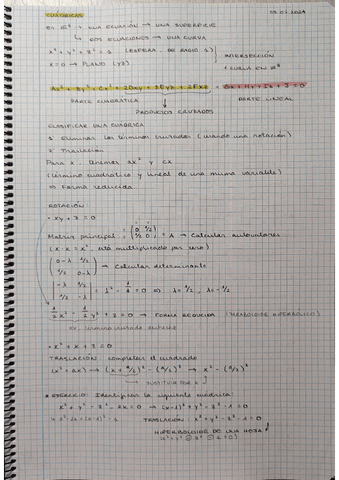 CUÁDRICAS
EN ℝ³ → UNA ECUACIÓN → UNA SUPERFICIE
↳ DOS ECUACIONES → UNA CURVA
x² + y² + z² = 1 (ESFERA, DE RADIO 1)
x = 0 → PLANO (YZ)
INTERSECCIÓN
1 CURVA EN ℝ³
Ax² + By² + Cz² + 2Dxy + 2Eyz + 2Fxz + Gx + Hy + Iz + J = 0
PARTE CUADRÁTICA
PARTE LINEAL
PRODUCTOS CRUZADOS
CLASIFICAR UNA CUÁDRICA
1 Eliminar los términos cruzados (usando una rotación)
2 Traslación
Para x. Unimos ax² y cx
(término cuadrático y lineal de una misma variable)
⇒ Forma reducida
ROTACIÓN
· xy + z = 0
Matriz principal = (0 1/2 1/2 0) = A → Calcular autovalores
(x·x = x², está multiplicado por cero)
(0-λ 1/2 1/2 0-λ) → Calcular determinante
|-λ 1/2 1/2 -λ| = λ² - 1/4 = 0 ⇔ λ = 1/2, λ = -1/2
1/2 x² - 1/2 y² + z = 0 → FORMA REDUCIDA (PARABOLOIDE HIPERBÓLICO)
· x² + x + z = 0
TRASLACIÓN: completar el cuadrado
(x² + ax) → (x + a/2)² - (a/2)² → x² - (a/2)²
SUSTITUIR POR X
* EJERCICIO: Identificar la siguiente cuádrica:
x² + y² - z² - 2x = 0 → (x-1)² + y² - z² - 1 = 0
TRASLACIÓN x² + y² - z² - 1 = 0
HIPERBOLOIDE DE UNA HOJA